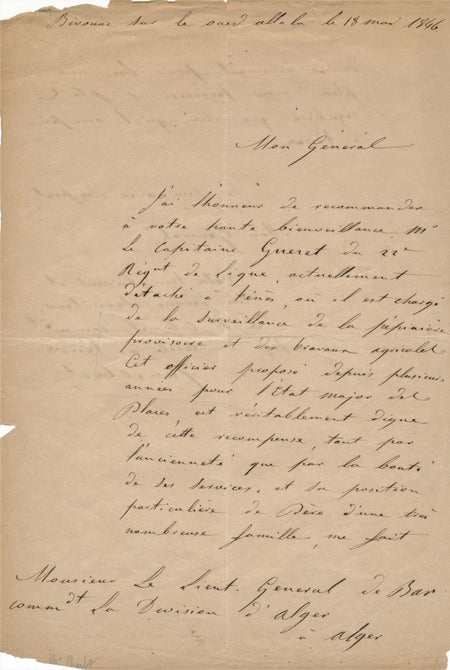 Bivouac sur le oued allala le 18 mai 1846
Mon Général
J'ai l'honneur de recommander
à votre haute bienveillance, Mr
Le Capitaine Gueret du 22e
Régnt de Ligne, actuellement
détaché à Ténès, où il est chargé
de la surveillance de la pépinière
provisoire et des travaux agricoles
Cet officier proposé depuis plusieurs
années pour l'état major des
Places est véritablement digne
de cette recompense, tant par
l'ancienneté que par la bonté
de ses services, et sa position
particulière de Père d'une très
nombreuse famille, me fait
Monsieur Le Lieut. Général de Bar
commdt La Division d'alger
à alger